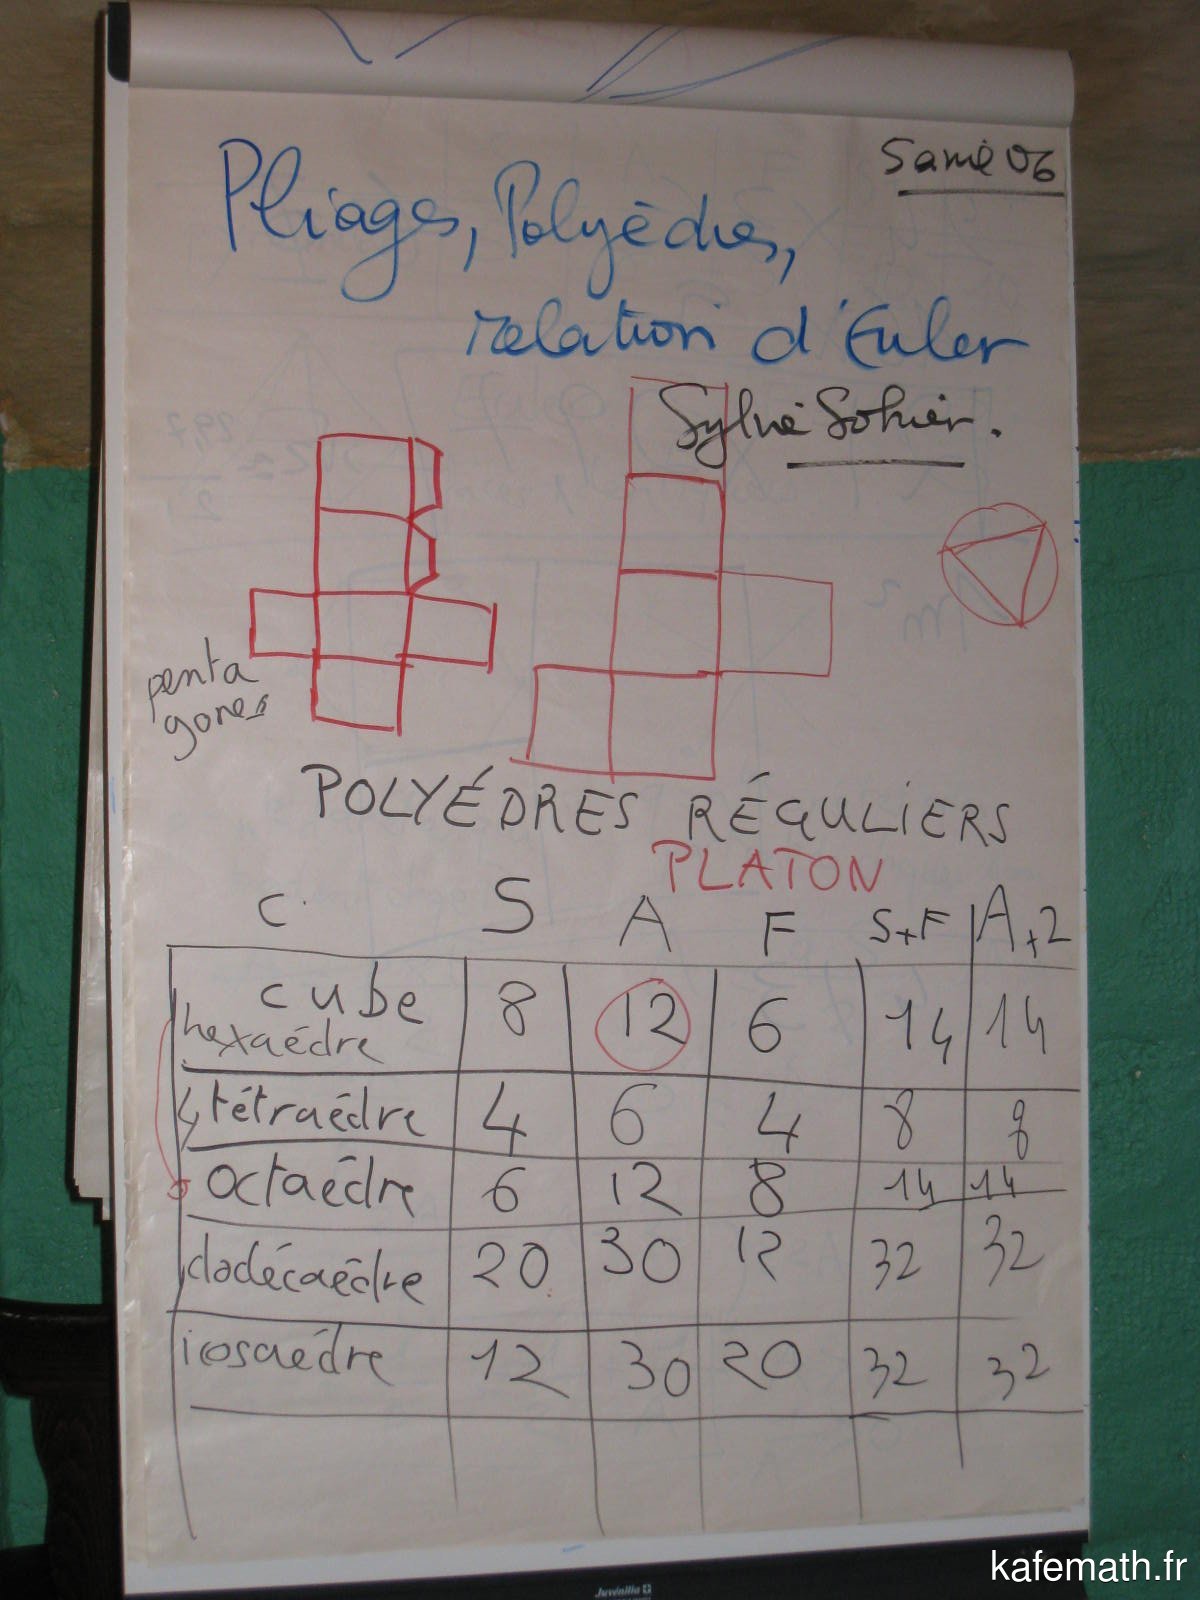 Pliages, Polyèdres,
relation d'Euler
Sylvie Sohier.
penta
gones
POLYÉDRES RÉGULIERS
PLATON
C. S A F S+F A+2
cube 8 12 6 14 14
hexaédre
tétraédre 4 6 4 8 8
octaédre 6 12 8 14 14
dodécaèdre 20 30 12 32 32
icosaédre 12 30 20 32 32
Juvénilia
kafemath.fr